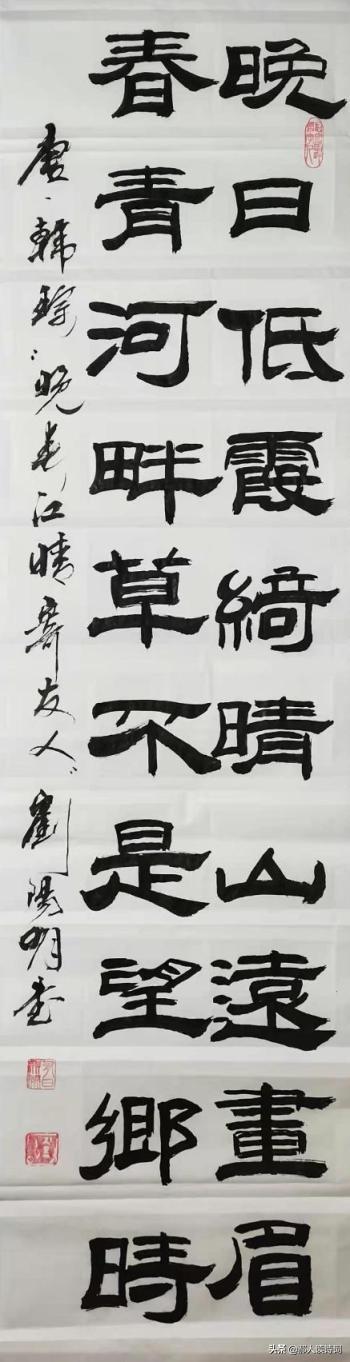 晚日低霞綺晴山遠畫眉
春青河畔草不是望鄉時
唐·韓琮·晚春江晴寄友人·劉陽明書
头条@都人谈诗词